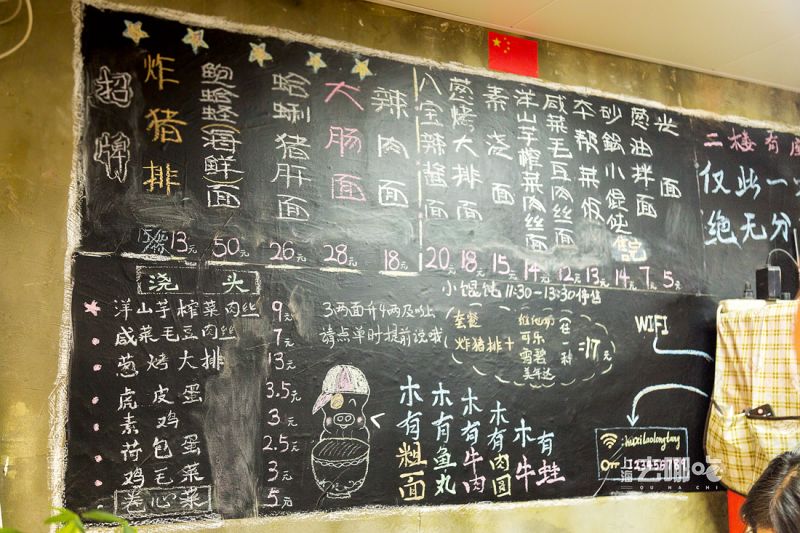 招牌
炸猪排
鲍蛤蛏海鲜面
蛤蜊猪肝面
大肠面
辣肉面
八宝辣酱面
葱烤大排面
素浇面
洋山芋榨菜肉丝面
咸菜毛豆肉丝面
本帮菜饭
砂锅小馄饨
葱油拌面
光面
13元
50元
26元
28元
18元
20元
18元
15元
14元
12元
13元
14元
7元
5元
售完
小馄饨11:30-13:30停售
二楼有
仅此一
绝无分
浇头
洋山芋榨菜肉丝 9元
咸菜毛豆肉丝 7元
葱烤大排 13元
虎皮蛋 3.5元
素鸡 3元
荷包蛋 2.5元
鸡毛菜 3元
卷心菜 5元
3两面升4两及以上
请点单时提前说哦
套餐
炸猪排+
维他奶
可乐
雪碧
美年达
任一种
=17元
木有粗面
木有鱼丸
木有牛肉
木有肉圆
木有牛蛙
WIFI
上海去哪吃
QU NA CHI